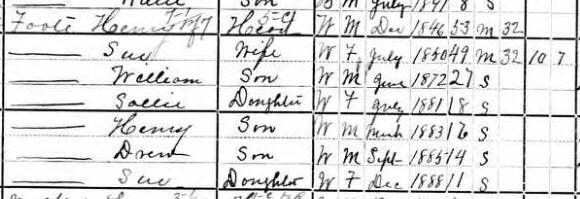 Willie Son B M July 1891 8 S
Foote Henry Head W M Dec 1846 53 M 32
—— Sue Wife W F July 1850 49 M 32 10 7
—— William Son W M June 1872 27 S
—— Sallie Doughter W F July 1881 18 S
—— Henry Son W M Mch 1883 16 S
—— Drew Son W M Sept 1885 14 S
—— Sue Doughter W F Dec 1888 11 S